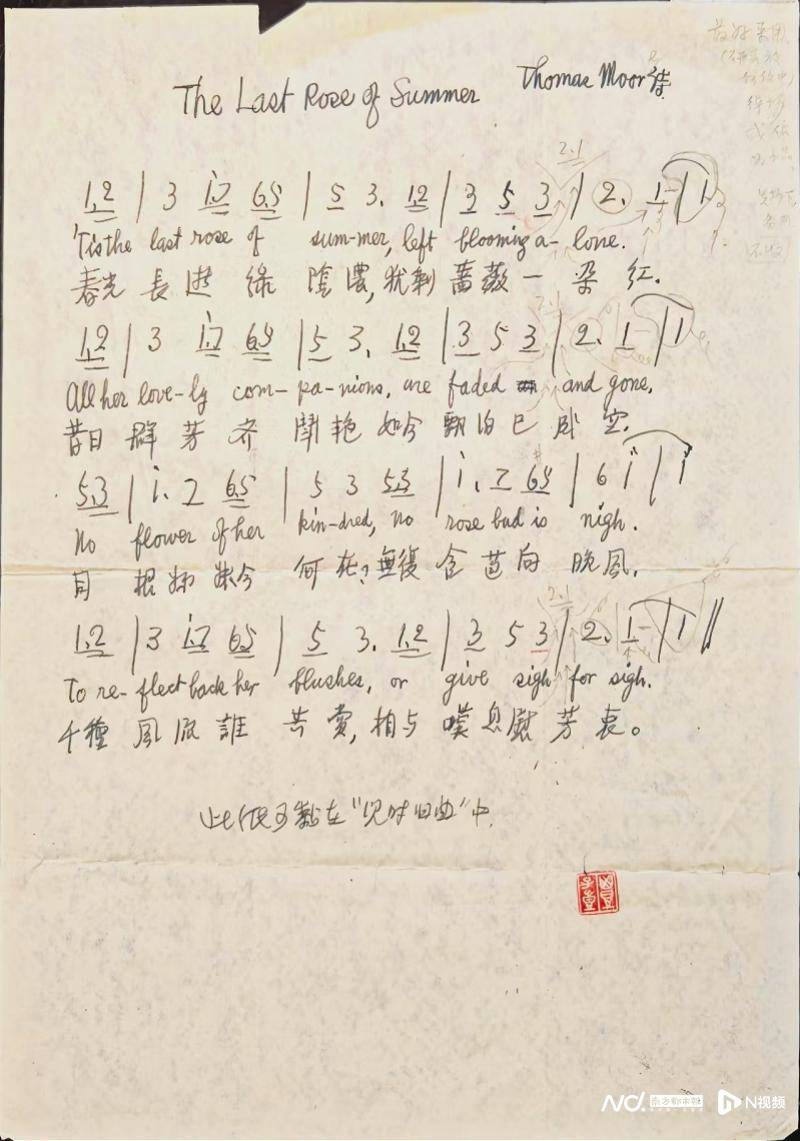 The Last Rose of Summer Thomas Moor 詩
1.2 | 3 1.7 6.5 | 5 3. 12 | 3 5 3 | 2. 1- | 1
'Tis the last rose of sum-mer, left blooming a-lone.
春光長逝綠陰濃,猶剩薔薇一朵紅.
12 | 3 1.7 6.5 | 5 3. 12 | 3 5 3 | 2. 1- | 1
All her love-ly com-pa-nions, are faded and gone,
昔日群芳齐鬪艳如今飘泊已成空.
5.3 | i. 7 6.5 | 5 3 5.3 | i. 7 6.5 | 6 i | i
No flower of her kin-dred, no rose bud is nigh.
同根姊妹今何在?無復含苞向晚風,
1.2 | 3 1.7 6.5 | 5 3. 1.2 | 3 5 3 | 2. 1- | 1 ||
To re-flect back her blushes, or give sigh for sigh.
千種風流誰共賞,相与嘆息慰芳衷。
此纸可黏在"儿时旧曲"中
2.1
2.1
2.1
最好采用
豐子愷
ND. 南方都市報 N视频